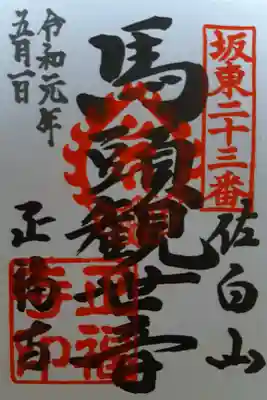 坂東二十三番
佐白山
馬頭観世音
正福寺
令和元年
五月一日
正福
寺印